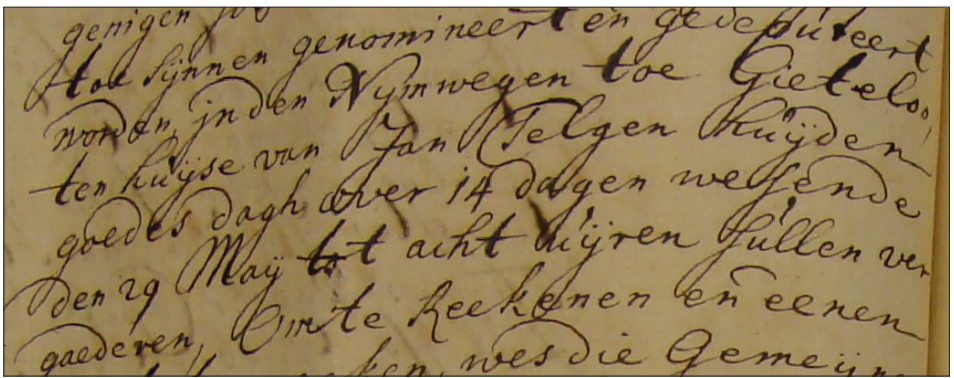 genigen
toe sijnnen genomineert en gedeputeert
worden, jnden Nijmwegen toe Gieteloo,
ten huijse van Jan Telgen huijden
goedes dagh over 14 dagen wesende
den 29 Maij tot acht uijren sullen ver
gaederen, Om te Reekenen en eenen
wes die Gemeij